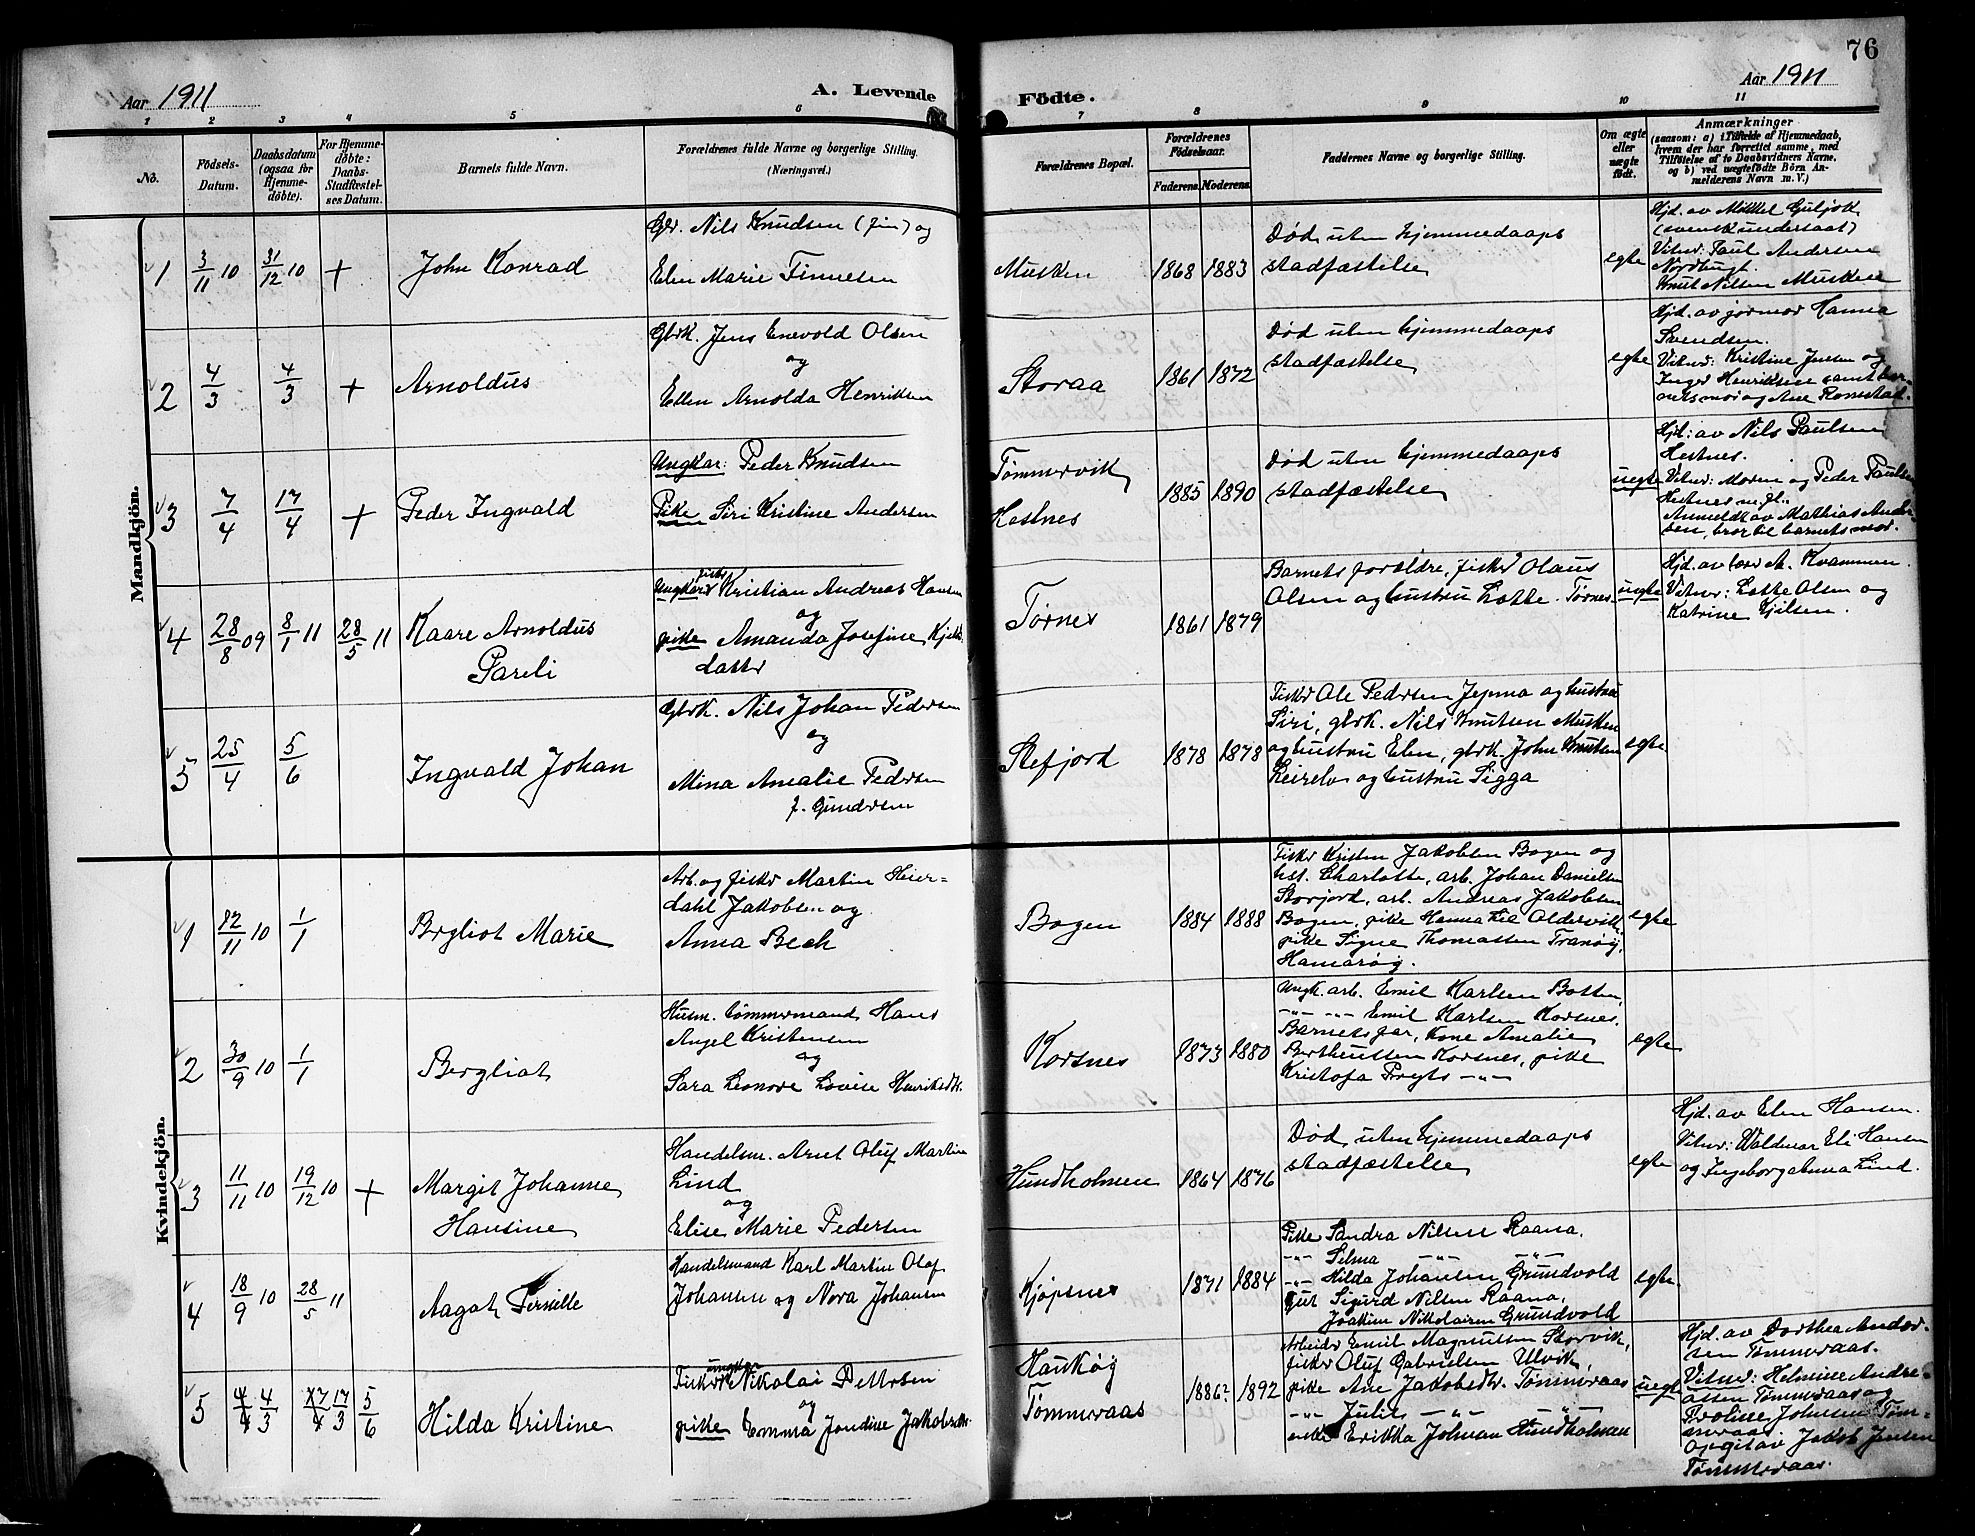 76
Aar 1911
A. Levende
Födte.
Aar 1911
1 2 3 4 5 6 7 8 9 10 11
No.
Födsels-
Datum.
Daabsdatum
(ogsaa for
Hjemme-
döbte).
For Hjemme-
döbte:
Daabs-
Stadfæstel-
ses Datum.
Barnets fulde Navn.
Forældrenes fulde Navne og borgerlige Stilling.
(Næringsvei.)
Forældrenes Bopæl.
Forældrenes
Födselsaar.
Faderens. Moderens.
Faddernes Navne og borgerlige Stilling.
Om ægte
eller
uægte
födt.
Anmærkninger
(saasom: a) i Tilfælde af Hjemmedaab,
hvem der har forrettet samme, med
Tilföielse af to Daabsvidners Navne,
og b) ved uægtefödte Börn An-
melderens Navn m. V.)
Mandkjön.
1 3/11 10 31/12 10 +
John Konrad
Gbr. Nils Knudsen (fin) og
Elen Marie Finnesen
Musken
1868 1883
Död uten hjemmedaaps
stadfæstelse
egte
Hjd. av Mikkel Guljok
(svensk undersaat)
Vitner: Paul Andersen
Nordbugt.
Knut Nilsen Musken
2 4/3 4/3 +
Arnoldus
Gbrk. Jens Enevold Olsen
og
Ellen Arnolda Henriksen
Storaa
1861 1872
Död uten hjemmedaaps
stadfæstelse
egte
Hjd. av jormor Hanna
Svendsen.
Vitner: Kristine Jensen og
Inger Henriksen samt bar-
nets mor og Ane Romstad.
3 7/4 17/4 +
Peder Ingvald
Ungkar: Peder Knudsen
Pike Siri Kristine Andersen
Tømmervik
Hestnes
1885 1890
Död uten hjemmedaaps
stadfæstelse
uegte
Hjd: av Nils Paulsen
Hestnes.
Vitner: Moren og Peder Paulsen
Hestnes
Anmeldt av Mathias Ander-
sen, bror til barnets mor.
4 28/8 09 8/1 11 28/5 11
Kaare Arnoldus
Pareli
fisker
Ungkar Kristian Andreas Hansen
og
pike Amanda Josefine
datter
Tørnes
1861 1879
Barnets forældre, fisker Olaus
Olsen og hustru Lotte. Tørnes
uegte
Hjd. av lærer A. Kvammen.
Vitner: Lotte Olsen og
Katrine Kjilsen.
5 25/4 5/6
Ingvald Johan
Gbrk. Nils Johan Pedersen
og
Mina Amalie Pedersen
f. Gundersen
Stefjord
1878 1878
Fisker Ole Pedersen Jepma og hustru
Siri, gbrk. Nils Knutsen Musken
og hustru Elen, gbrk. John Knutsen
Leirelv og hustru Sigga
egte
Kvindekjön.
1 12/11 10 1/1
Bergliot Marie
Arb. og fisker Martin Heier-
dahl Jakobsen og
Anna Bech
Bogen
1884 1888
Fisker Kristen Jakobsen Bogen og
hst. Charlotte, arb. Johan Danielsen
Storjord, arb. Andreas Jakobsen
Bogen, pike Hanna Lie Aldervik,
pike Signe Thomassen Tranøy,
Hamarøy.
egte
2 30/9 10 1/1
Bergliot
Husm. tømmermand Hans
Angel Kristensen
og
Sara Leonore Lovise Henriksdtr.
Korsnes
1873 1880
Ungk. arb. Emil Karlsen Botten,
-"- -"- Emil Karlsen Korsnes.
Barnets far, Kone Amalie
Bertheussen Korsnes, pike
Kristofa Pryts -"-
egte
3 11/11 10 19/12 10 +
Margit Johanne
Hansine
Handelsm. Arnt Oluf Martin
Lind
og
Elise Marie Pedersen
Hundholmen
1864 1876
Död uten hjemmedaaps
stadfæstelse
egte
Hjd. av Elen Hansen.
Vitner: Waldemar Eli Hansen
og Ingeborg Anna Lind.
4 18/9 10 28/5 11
Aagot Pernille
Handelsmand Karl Martin Olaf
Johansen og Nora Johansen
Kjøpsnes
1871 1884
Pike Sandra Nilsen Raana.
-"- Selma -"- -"-
-"- Hilda Johansen Grundvold
Gut Sigurd Nilsen Raana,
Joakim Nikolaisen Grundvold
egte.
5 4/4 4/3 17/4 17/3 5/6
Hilda Kristine
ungkar
Fisker Nikolai Pettersen
og
pike Emma Jondine Jakobsdtr.
Haukøy
Tømmeraas
1886? 1892
Arbeider Emil Magnussen Storvik,
fisker Oluf Gabrielsen Ulvik,
pike Ane Jakobsdtr. Tømmeraas
-"- Julie -"- -"-
enke Erikka Johnsen Hundholmen
uegte
Hjd. av Dorthea Ander-
sen Tømmeraas.
Vitner: Helmine Andre-
assen Tømmeraas og
Froline Johnsen Tøm-
meraas
Opgit av Jakob Jensen
Tømmeraas.